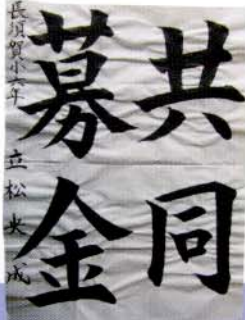 共同
募金
長須賀小六年 立松大成